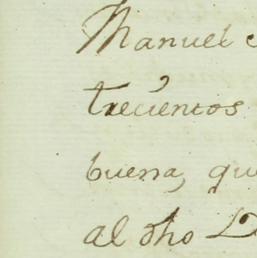 Manuel
trecientos
buena, qu
al dho D